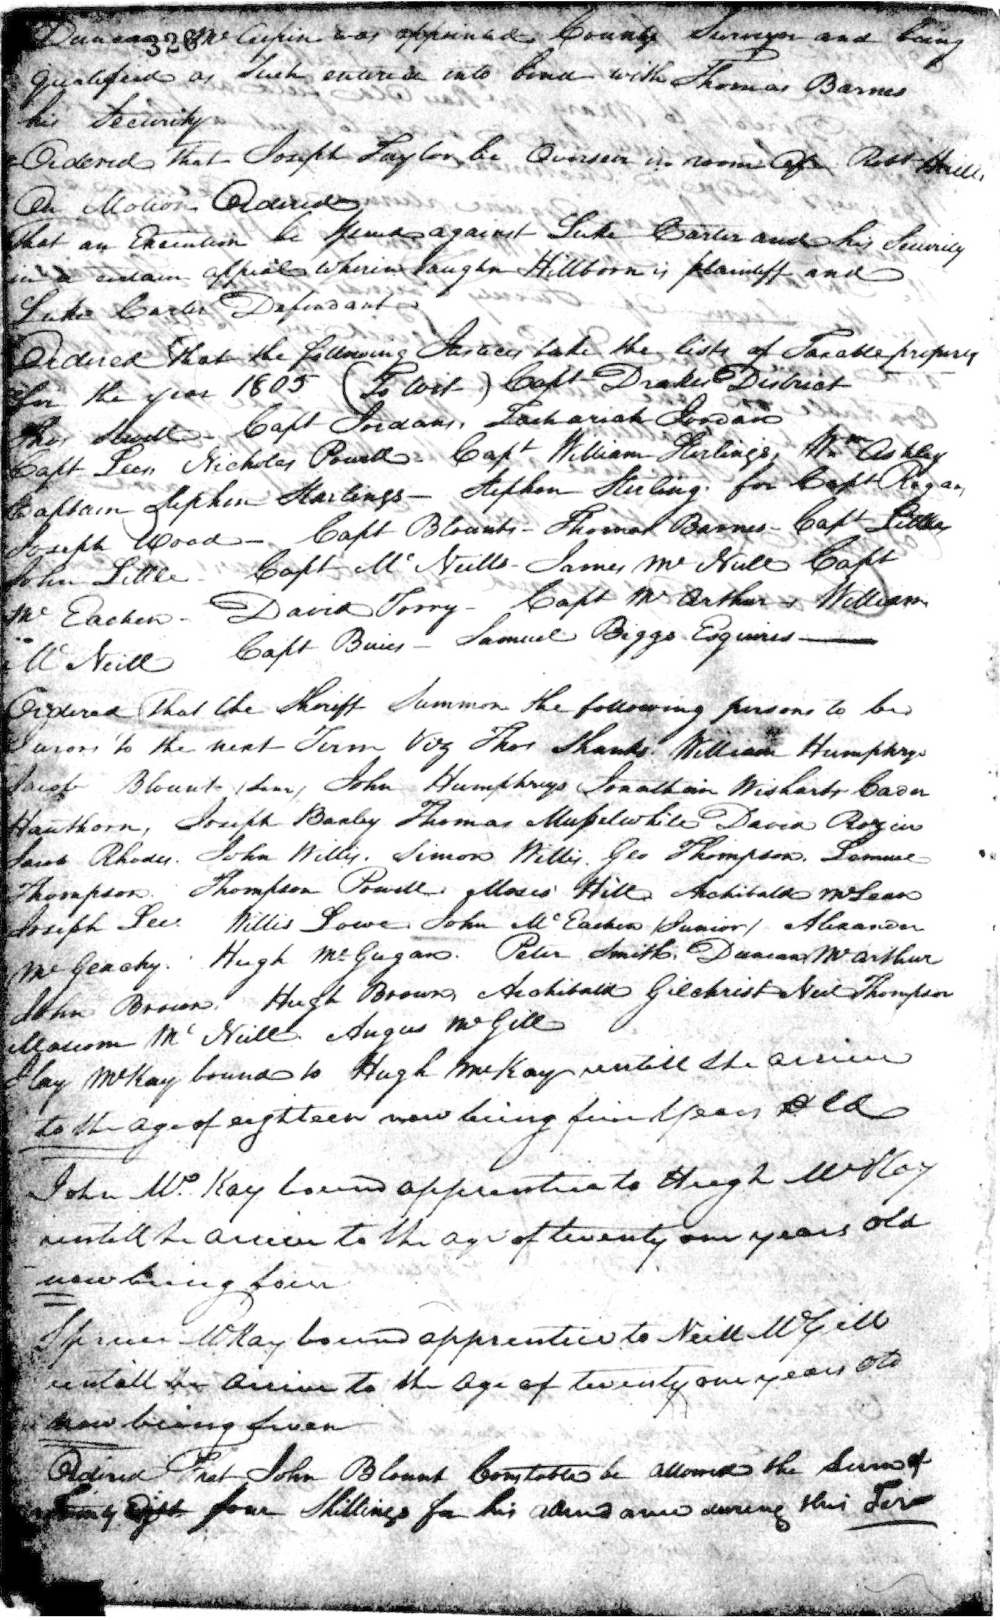 328
Duncan Mc Alpin was appointed County Surveyor and being
qualified as Such entered into bond with Thomas Barnes
his Security
Ordered that Joseph Taylor be Overseer in room of Robt
On Motion Ordered
that an Execution be Issued against Luke Carter and his Security
in a certain appeal wherein Vaughn Hillborn is plaintiff and
Luke Carter Defendant
Ordered That the following Justices take the lists of Taxable property
for the year 1805 (To Wit) Capt Drakes District
Thos Capt Jordans, Zachariah Jordan
Capt Lees, Nicholas Powell - Capt William Sterlings, Wm Ashley
Captain Stephen Starlings - Stephen Sterling. for Capt Regan,
Joseph Wood - Capt Blounts - Thomas Barnes - Capt Littles
John Little - Capt Mc Neills - James Mc Neill Capt
Mc Eachen - David Torry - Capt Mc Arthur - William
Mc Neill Capt Buies - Samuel Biggs Esquires
Ordered That the Sheriff Summon the following persons to be
Jurors to the next Term Viz Thos Shanks William Humphrys
Jacob Blount (Senr) John Humphreys Jonathan Wishart Cader
Hawthorn, Joseph Baxley Thomas Musselwhite David Rozier
Jacob Rhodes. John Willis. Simeon Willis. Geo Thompson. Lemuel
Thompson. Thompson Powell. Moses Hill. Archibald McLean
Joseph Lee. Willis Lowe John Mc Eachen (Junior) Alexander
Mc Geachy. Hugh McGugan. Peter Smith. Duncan McArthur
John Brown. Hugh Brown. Archibald Gilchrist Neil Thompson
Malcom Mc Neill. Angus McGill
Ilay McKay bound to Hugh McKay untill She arrive
to the age of eighteen now being five Years Old
John Mc Kay bound apprentice to Hugh McKay
untill he arrive to the age of twenty one years old
now being four
Spencer McKay bound apprentice to Neill McGill
untill he arrive to the age of twenty one years old
now being seven
Ordered That John Blount Constable be allowed the Sum of
four Shillings for his attendance during this Ter